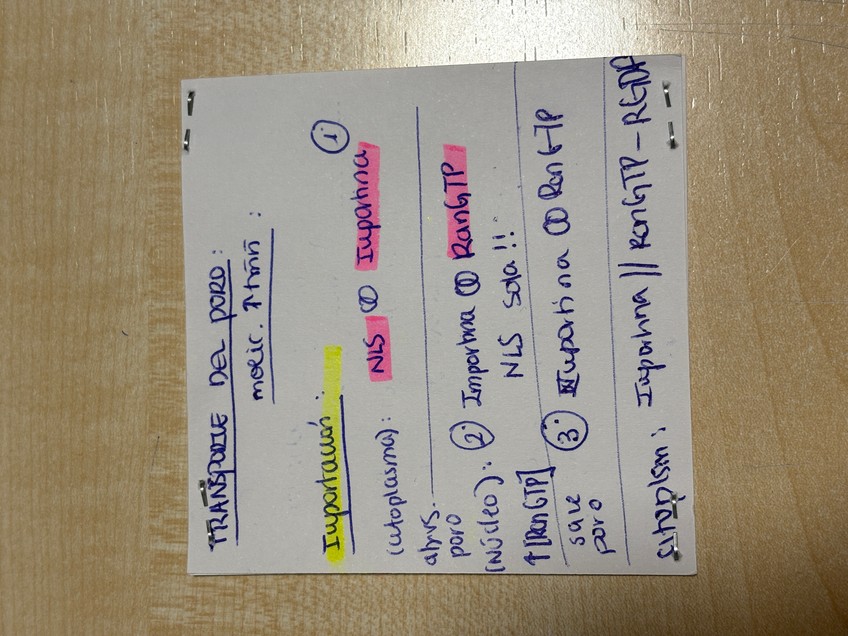 TRANSPORTE DEL PORO:
molec. ↑tmñ:
Importación:
①
(citoplasma): NLS ꝏ Importina
atravs.
poro
(Núcleo): ② Importina ꝏ RanGTP
↑[RanGTP] NLS sola!!
sale ③ Importina ꝏ RanGTP
poro
citoplsm: Importina || RanGTP - RGDP